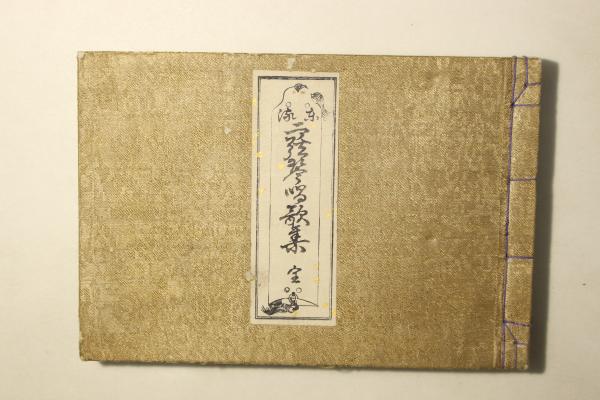 東流
二絃琴唱歌集